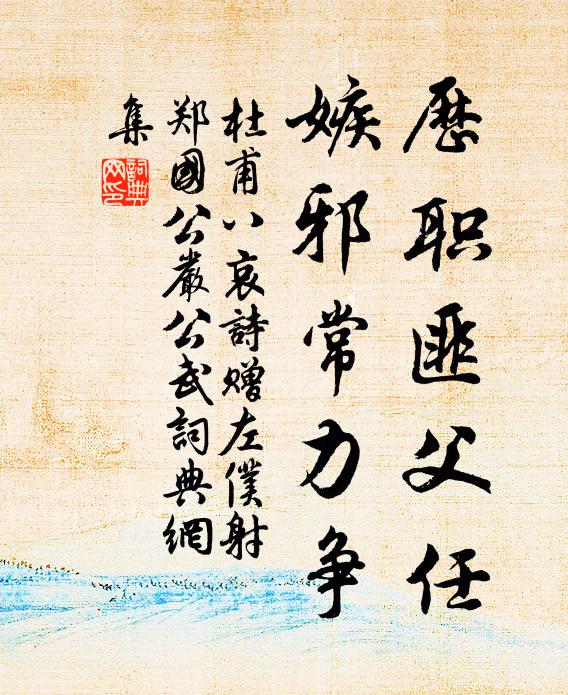 歷职匪父任
嫉邪常力争
杜甫八哀詩赠左僕射
郑國公嚴公武詞典網
集
詞典
网印